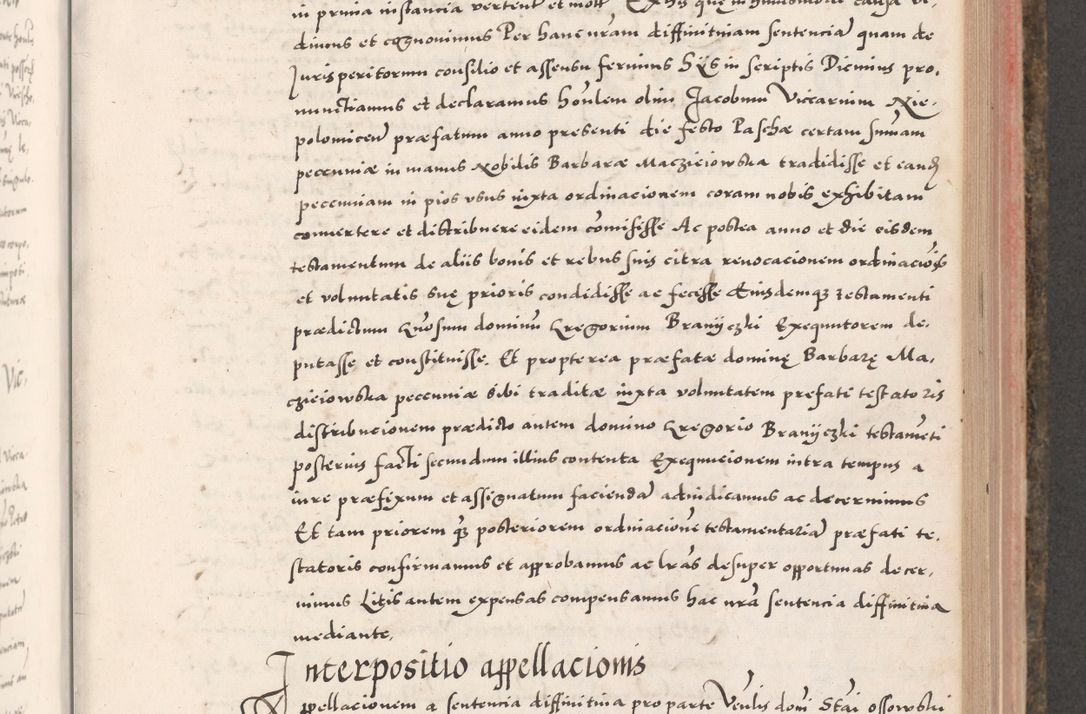 in prima instancia vertent et mott Ex his quę in huiusmodi causa vi-
dimus et cognovimus Per hanc nram diffinitivam sentencia quam de
Jurisperitorum consilio et assensu ferimus Hijs in scriptis Dicimus pro-
nunctiamus et declaramus honlem olim Jacobum Viccarium Nie-
polomicen præfatum anno presenti die festo Paschæ certam sumam
pecuniæ in manus Nobilis Barbaræ Macziejowska tradidisse et eandē
pecuniam in pios usus iuxta ordinacionem coram nobis exhibitam
convertere et distribuere eidem comisisse Ac postea anno et die eisdem
testamentum de aliis bonis et rebus suis citra revocacionem ordinacionis
et voluntatis suę prioris condidisse ac fecisse Eiusdemq testamenti
prædictum Gnosum dominū Gregorium Branijczki Exequutorem de-
putasse et constituisse. Et propterea præfatæ dominę Barbarę Ma-
cziejowska pecuniæ sibi traditæ iuxta voluntatem prefati testatoris
distribucionem prædicto autem domino Gregorio Branijczki testameti
posterius facti secundum illius contenta Exequucionem intra tempus a
iure præfixum et assignatum facienda adiudicamus ac decernimus
Et tam priorem q posteriorem ordinacione testamentaria præfati te-
statoris confirmamus et approbamus ac lras desuper opportunas decer-
nimus Litis autem expensas compensamus hac nra sentencia diffinitiva
mediante.
Interpositio appellacionis
Appellacionem a sentencia diffinitiva pro parte Venlis domi Stai Ossowski